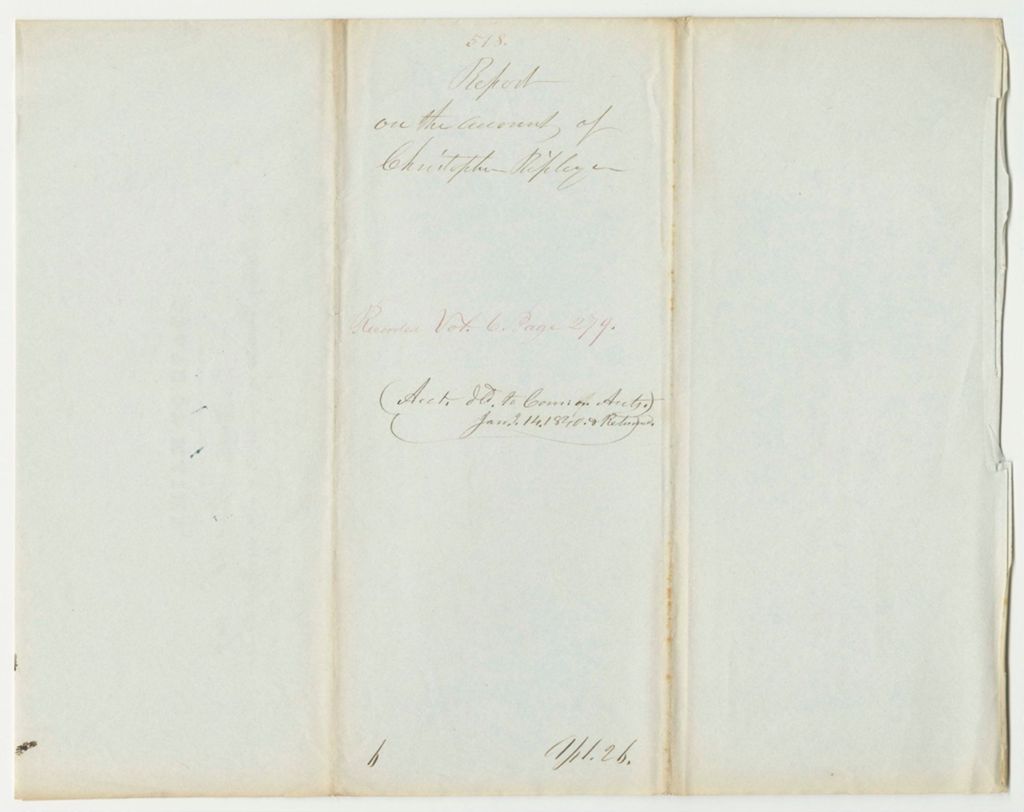 518.
Report
on the account of
Christopher Ripley
Recorded Vol. 6. Page 279.
(Acct. dld. to Com. on Accts.)
Jany. 14. 1840. & Returned.
6